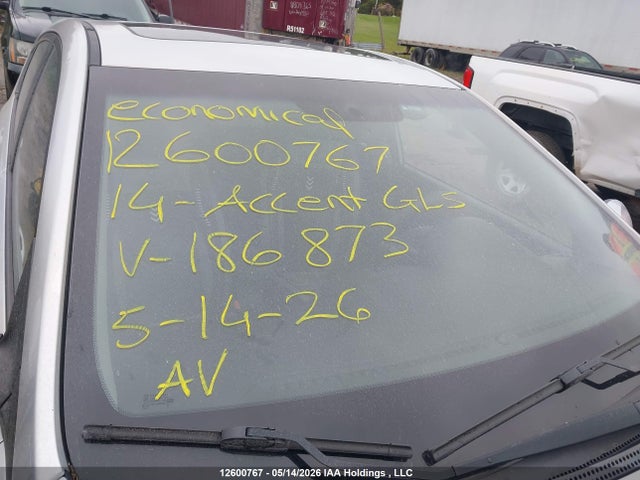 RS1102
economical
12600767
14-Accent GLS
V-186873
5-14-26
AV
12600767 - 05/14/2026 IAA Holdings , LLC